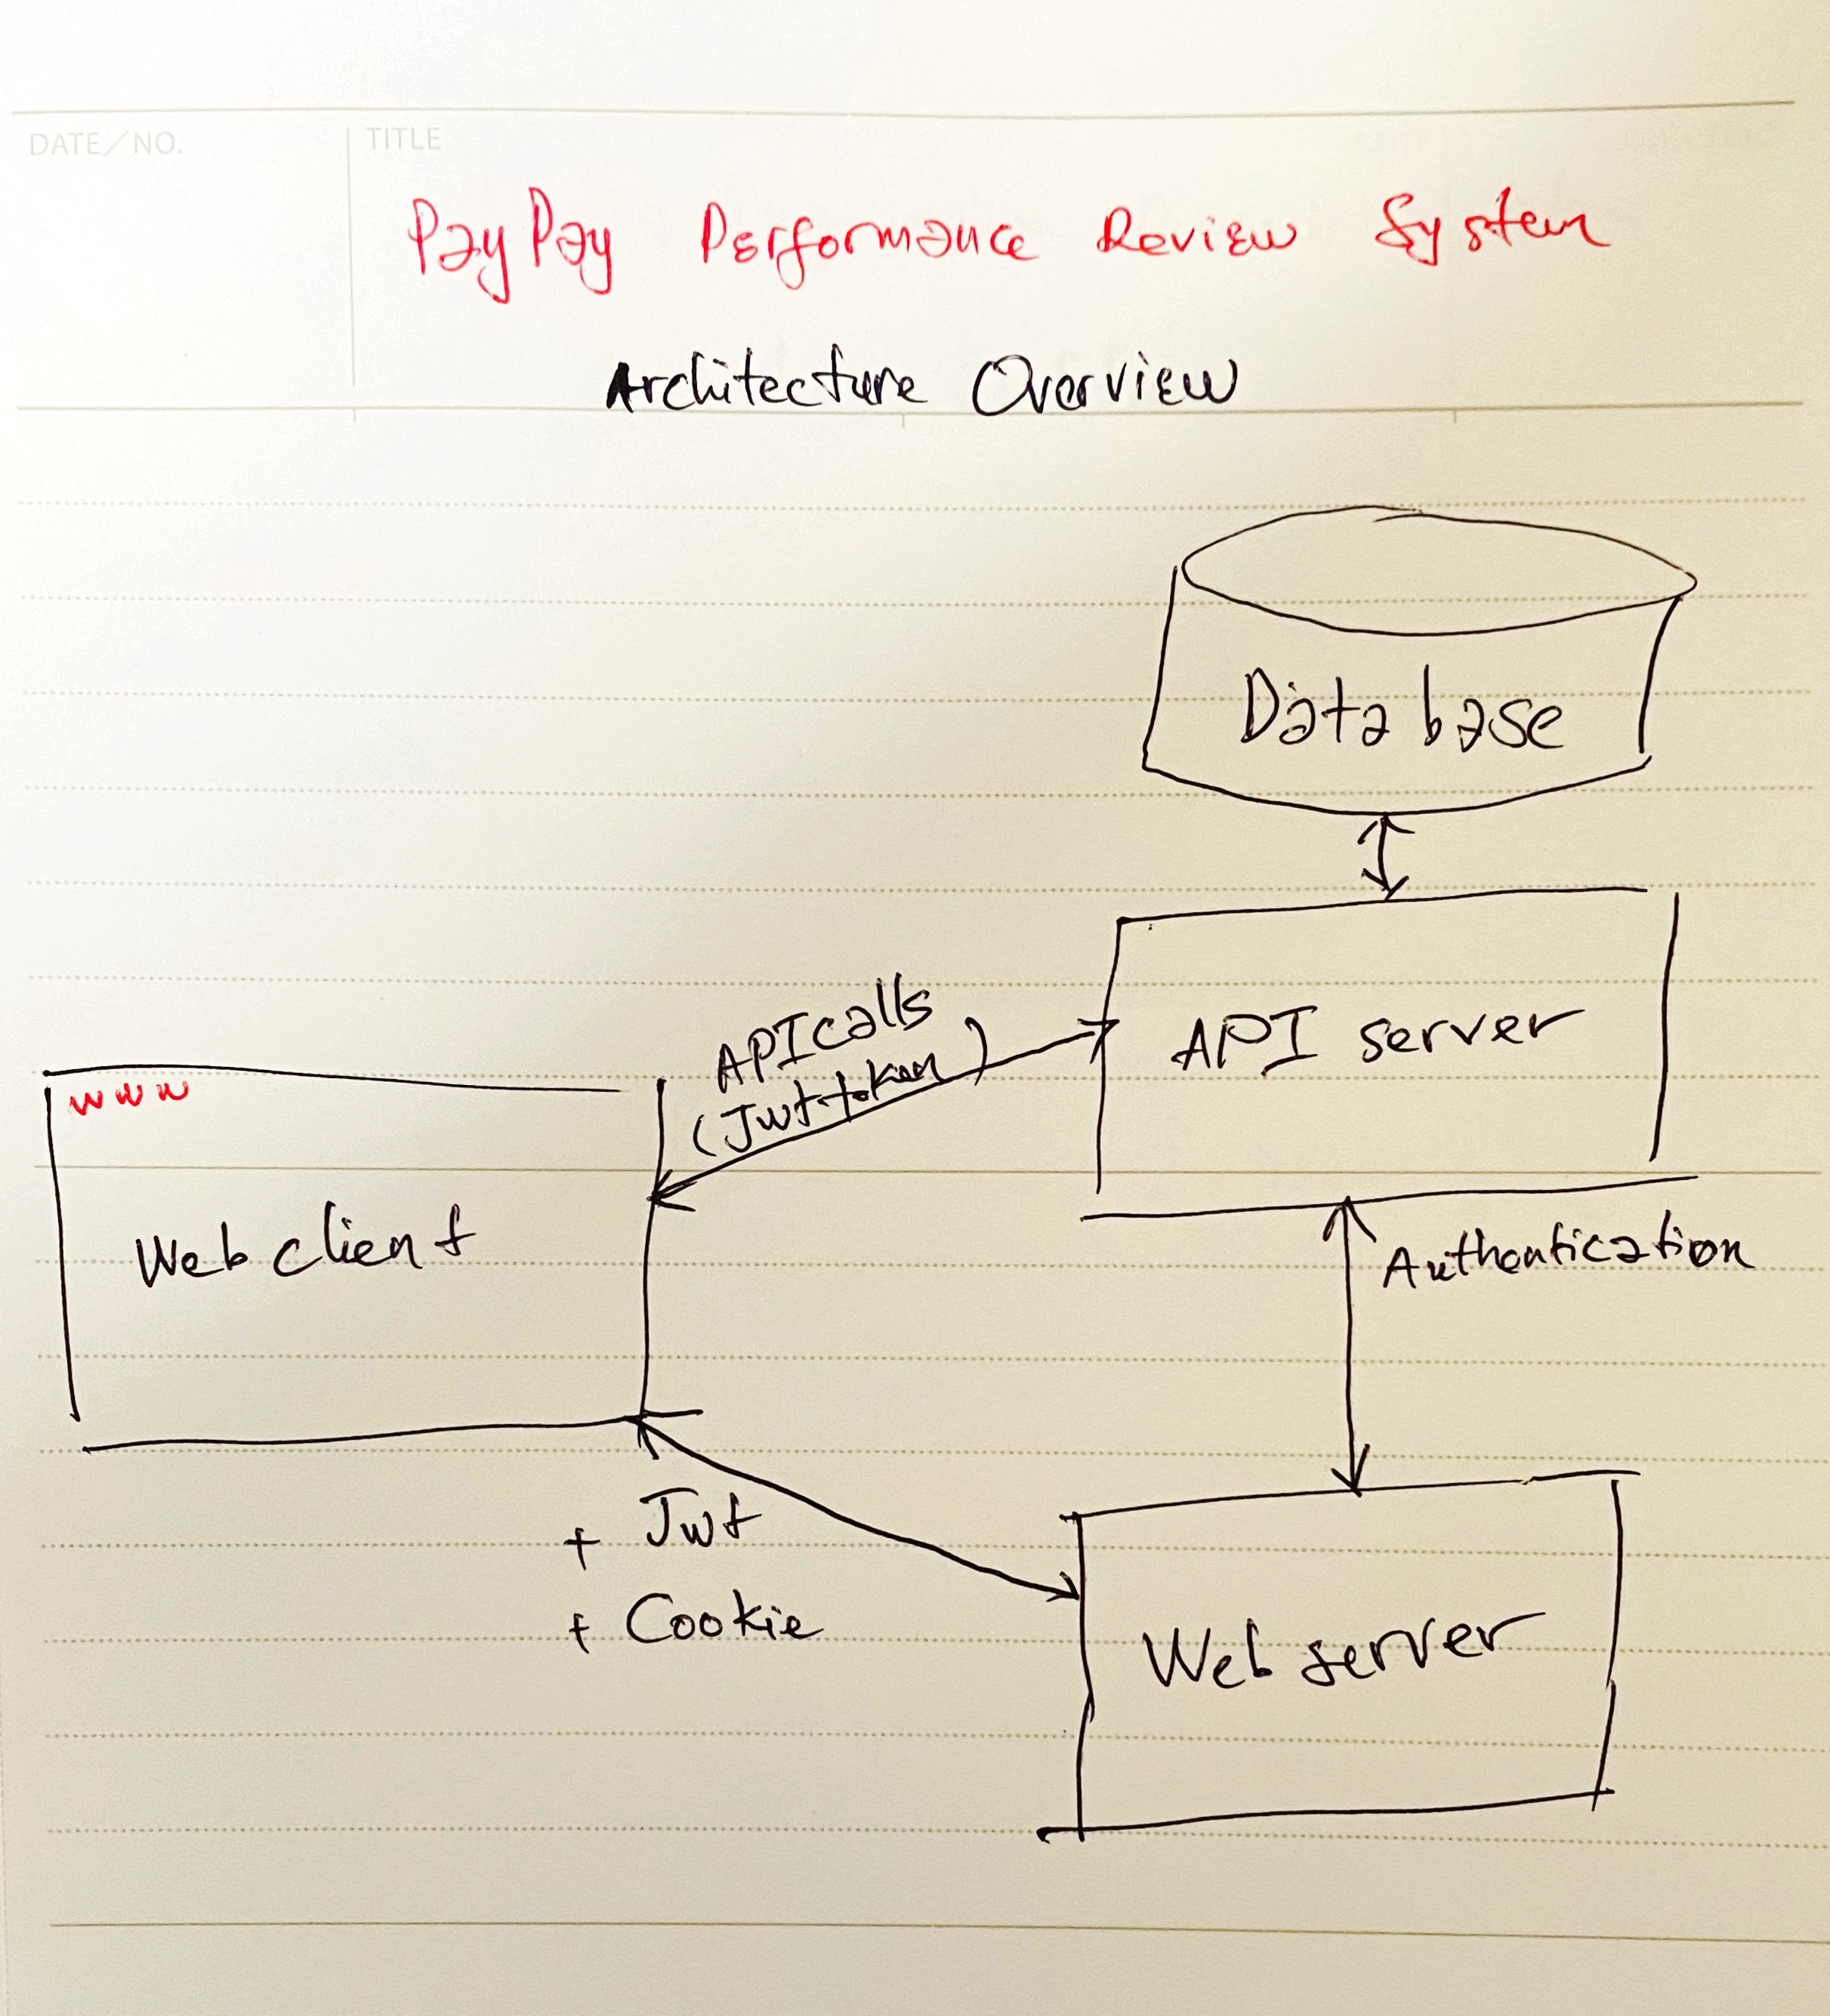 DATE/NO.
TITLE
PayPay Performance Review System
Architecture Overview
Database
API server
API calls
(Jwt token)
www
Web client
Authentication
+ Jwt
+ Cookie
Web server